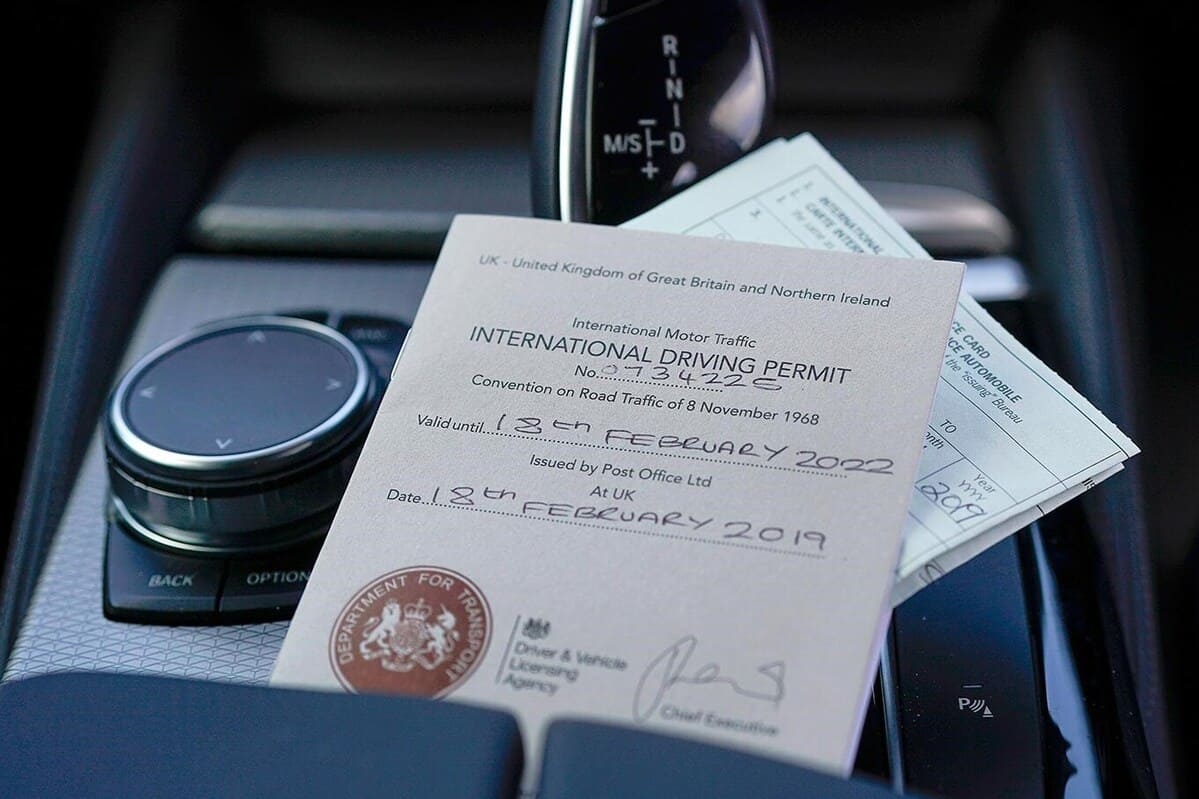 R
N
M/S
D
+
UK - United Kingdom of Great Britain and Northern Ireland
International Motor Traffic
INTERNATIONAL DRIVING PERMIT
No. 0734226
Convention on Road Traffic of 8 November 1968
Valid until 18th FEBRUARY 2022
Issued by Post Office Ltd
At UK
Date 18th FEBRUARY 2019
DEPARTMENT FOR TRANSPORT
Driver & Vehicle
Licensing
Agency
Chief Executive
INTERNATIONAL
CARTE INTER
CE CARD
CE AUTOMOBILE
the "issuing" Bureau
TO
Year
YYYY
2019
BACK
OPTION
P